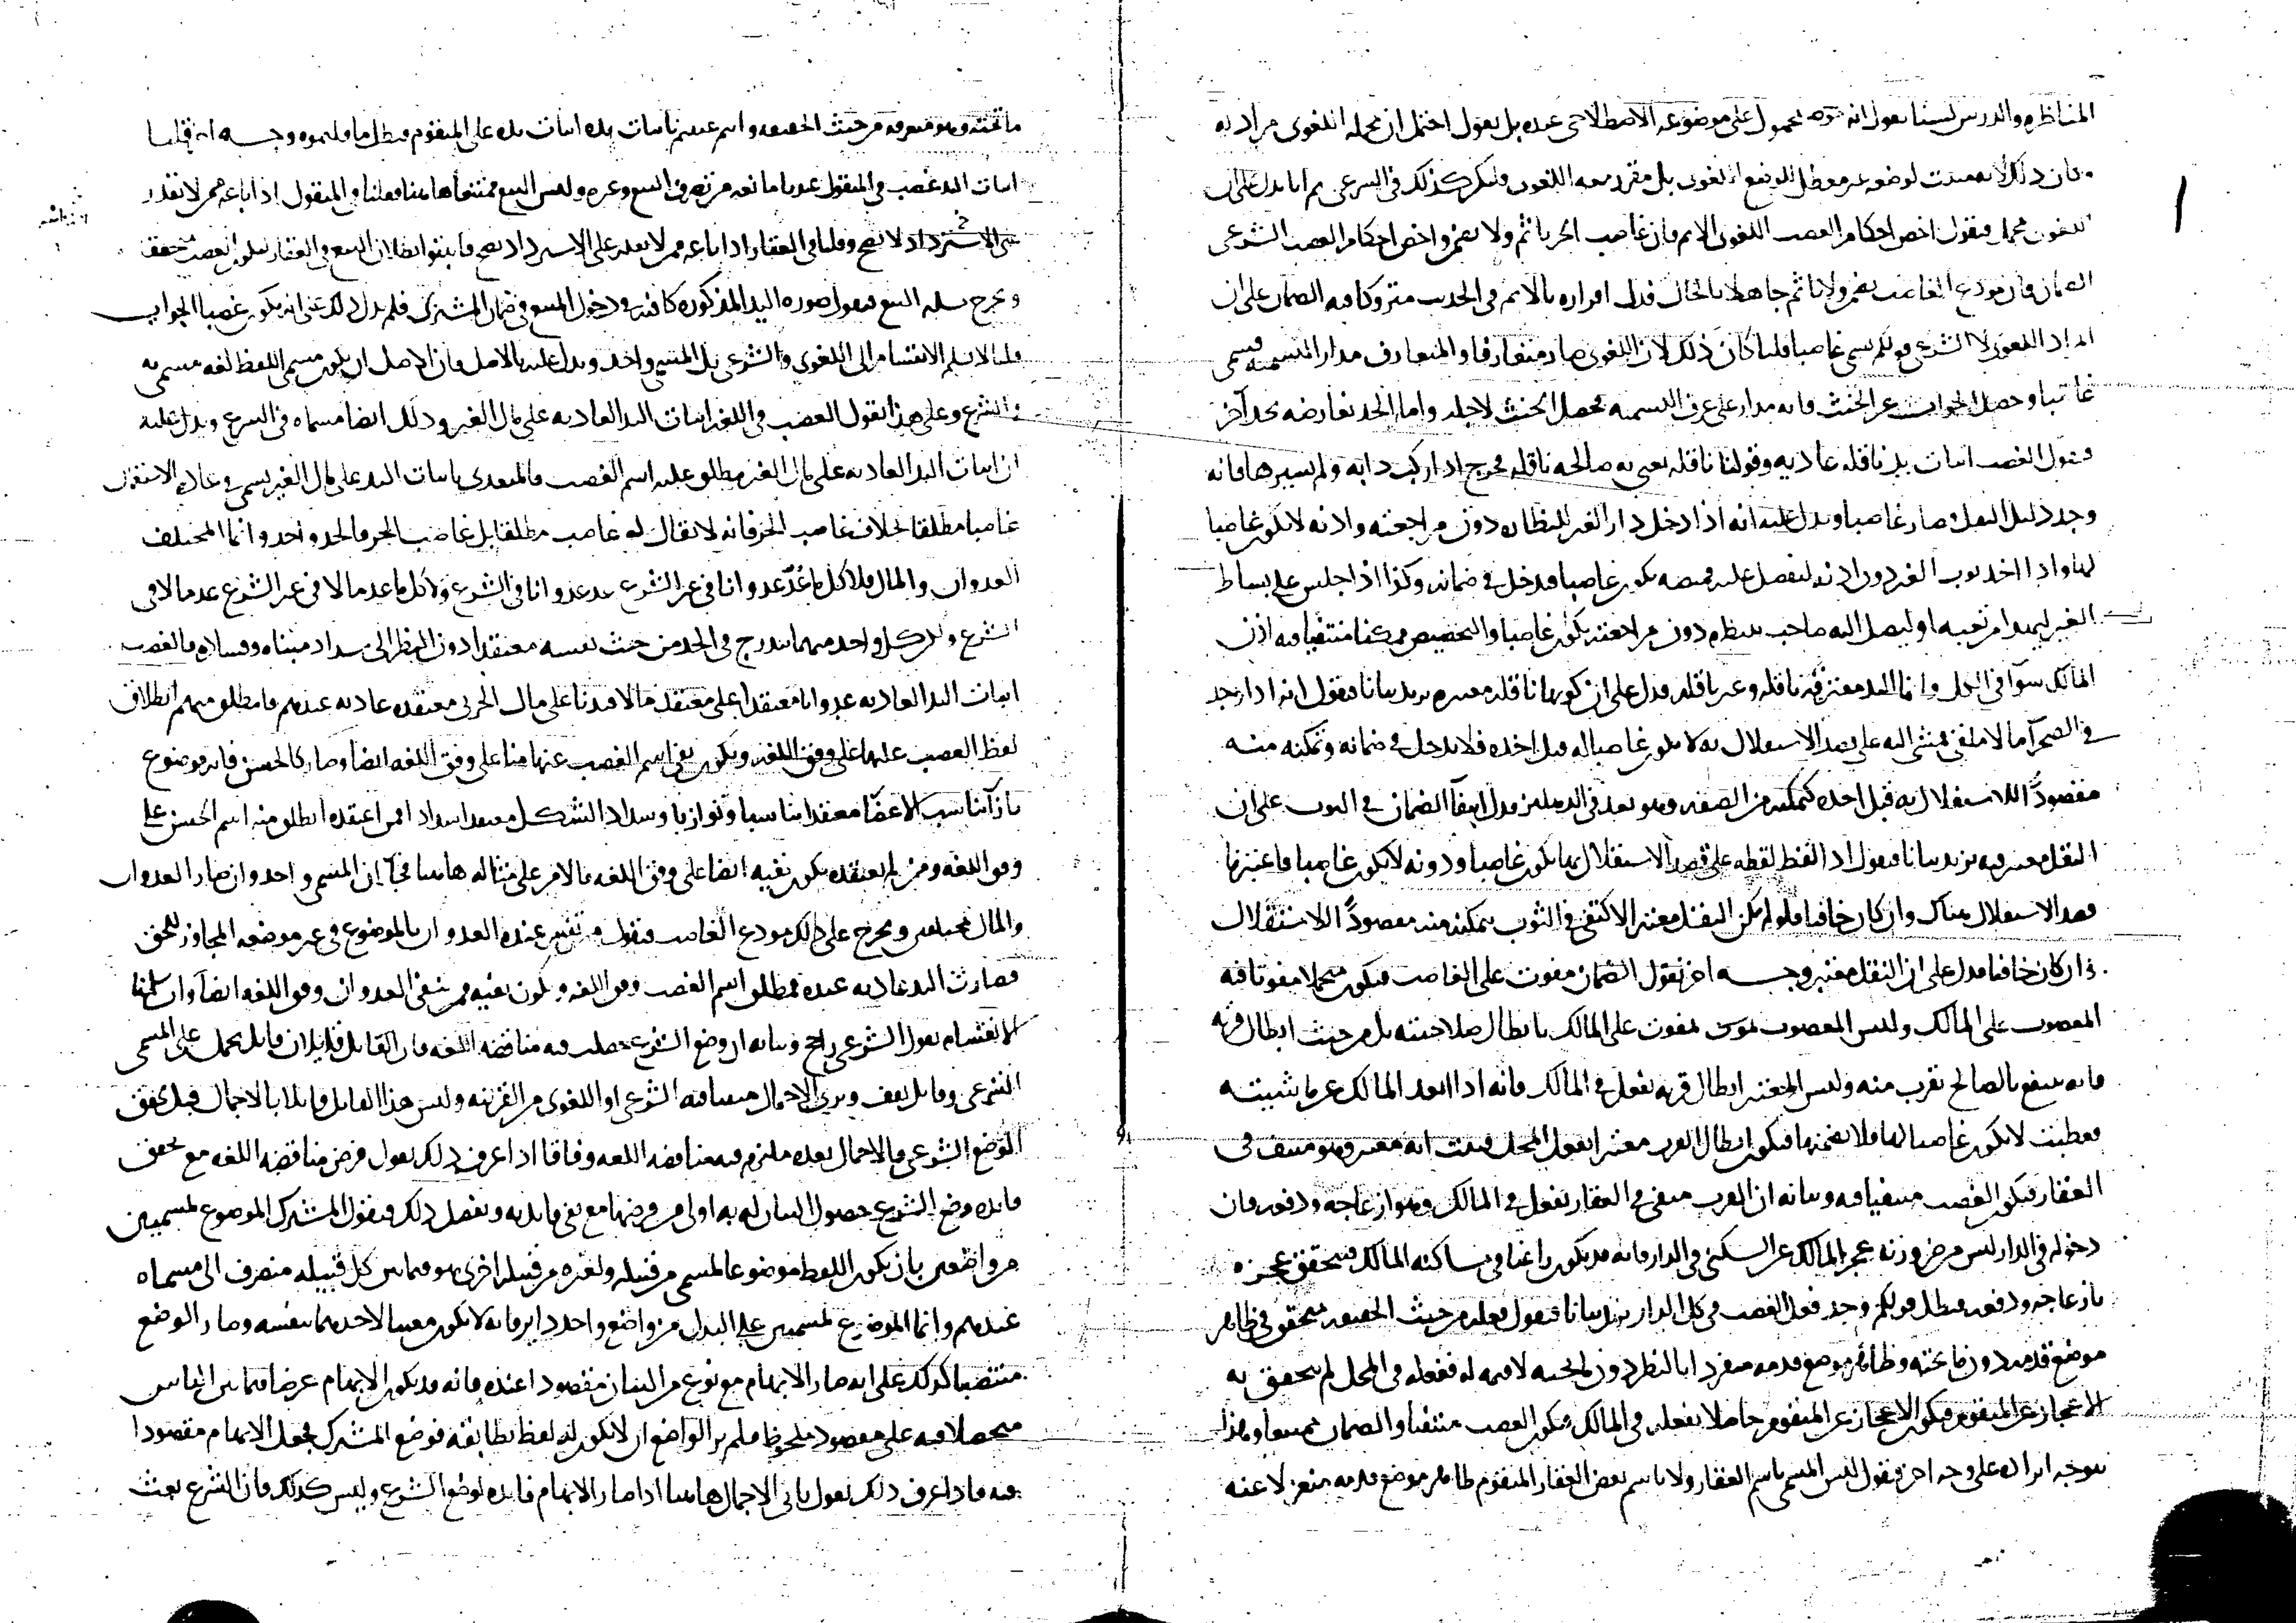 المناظره والدرس لسنا نقول انه محمول على موضوعه الاصطلاحي عنده بل نقول احتمل ان محمله اللغوى مراد به
اللغوى محمل فنقول اخص احكام الغصب اللغوى الاثم فان غاصب الحر ياثم ولا يضمن واخص احكام الغصب الشرعى
الضمان فان مودع الغاصب يضمن ولا ياثم جاهلا بالحال فدل اقراره بالاثم فى الحديث متروكا فيه الضمان على ان
المراد اللغوى لا الشرعى قولكم يسمى غاصبا قلنا كان ذلك لان اللغوى صار متعارفا والمتعارف مدار التسميه فسمى
غاصبا وحصل الجواب عن الحنث فانه مدار على عرف التسميه فحصل الحنث لاجله واما الحد نعارضه بحد آخر
فنقول الغصب اثبات يد ناقله عاديه وقولنا ناقله نعنى به صالحه ناقله فخرج اذا ركب دابه ولم يسيرها فانه
وجد دليل النقل وصار غاصبا ويدل عليه انه اذا دخل دار الغير للنظاره دون مراجعته واذنه لا يكون غاصبا
لها واذا اخذ ثوب الغير دون اذنه ليفصل عليه قميصه يكون غاصبا فدخل فى ضمانه وكذا اذا جلس على بساط
الغير دون مراجعته يكون غاصبا والتخصيص ممكنا منتفيا فيه اذن
المالك سوآ فى الكل وانما اليد مفترقه ناقله وغير ناقله فدل على ان كونها ناقله معتبره نزيد بيانا فنقول انه اذا وجد
فى الصحرآ مالا ملقى فمشى اليه على قصد الاستقلال به لا يكون غاصبا له قبل اخذه فلا يدخل فى ضمانه وتمكنه منه
مقصودًا للاستقلال به قبل اخذه كتمكنه من فدل انتفآ الضمان فى الثوب على ان
النقل معتبر فيه نزيد بيانا فنقول اذا التقط لقطه على قصد الاستقلال بها يكون غاصبا ودونه لا يكون غاصبا فاعتبرنا
قصد الاستقلال هناك وان كان خافيا فلو لم يكن النقل معتبرا لاكتفى فى الثوب بتمكنه منه مقصودًا للاستقلال
وان كان خافيا فدل على ان النقل معتبر وجـــه اخر نقول الضمان مفوت على الغاصب فيكون متحملا مفوتا فيه
المغصوب على المالك وليس المغصوب مفوت على المالك بابطال صلاحيته بل من حيث ابطال قربه
فانه ينتفع بالصالح بقرب منه وليس المعتبر ابطال قربه بفعل فى المالك فانه اذا ابعد المالك عن ماشيته
فعطبت لا يكون غاصبا لها فلا يضمنها فيكون ابطال القرب معتبرا بفعل المحل فثبت انه معتبر وهو منتف فى
العقار فيكون الغصب منتفيا فيه وبيانه ان القرب منتفى فى العقار بفعل فى المالك وهو ازعاجه ودفعه فان
دخوله فى الدار ليس من ضرورته عجز المالك عن السكنى فى الدار فانه قد يكون راغبا فى مساكنه المالك فيتحقق عجزه
بازعاجه ودفعه فبطل قولكم وجد فعل الغصب فى كل الدار نزيد بيانا فنقول فعله من حيث الحقيقه متحقق فى ظاهر
موضع قدميه دون ما تحته وظاهر موضع قدمه منفردا بالنظر دون تحته لا قيمه له ففعله فى المحل لم يتحقق به
الاعجاز عن المتقوم فيكون الاعجاز عن المتقوم حاصلا بفعله فى المالك فيكون الغصب منتفيا والضمان ممتنعا وهذا
نتوجه ايراده على وجه اخر فنقول ليس المسمى باسم العقار ولا باسم بعض العقار المتقوم ظاهر موضع قدمه منعزلا عنه
ما تحته وهو متعرفه من حيث الحقيقه واسم باثبات يده اثبات يده على المتقوم فبطل ما قلتموه وجـــه اخر قلنا
اثبات اليد غصب فى المنقول عندنا من تصرف البيع وغيره وليس البيع ممتنعا هاهنا فقلنا فى المنقول اذا باعه ممن لا يقدر
على الاسترداد لا يصح وقلنا فى العقار اذا باعه ممن لا يقدر على الاسترداد يصح
ويخرج البيع فنقول صوره اليد المذكوره كافيه فى دخول المبيع فى ضمان المشترى فلم يدل ذلك على انه يكون غصبا الجواب
قلنا لا نسلم الانقسام الى اللغوى والشرعى بل المسمى واحد ويدل عليه بالاصل فان الاصل ان يكون مسمى اللفظ لغه مسمى به
فى الشرع وعلى هذا نقول الغصب فى اللغه اثبات اليد العاديه على مال الغير وذلك ايضا مسماه فى الشرع ويدل عليه
ان اثبات اليد العاديه على مال الغير مطلق عليه اسم الغصب فالمتعدى باثبات اليد على مال الغير يسمى فى عاده الاستعمال
غاصبا مطلقا بخلاف غاصب الحر فانه لا يقال له غاصب مطلقا بل غاصب الحر فالحد واحد وانما المختلف
العدوان والمال فلا كل ما عُدّ عدوانا فى غير الشرع يعد عدوانا فى الشرع ولا كل ما عد مالا فى غير الشرع عد مالا فى
الشرع ولكن كل واحد منهما يندرج فى الحد من حيث نفسه معتقدا دون النظر الى سداد مبناه وفساده فالغصب
اثبات اليد العاديه عدوانا معتقدا على معتقد مالا فيدنا على مال الحربى معتقده عاديه عندهم فانطلق منهم انطلاق
لفظ الغصب عليها على وفق اللغه ويكون نفى اسم الغصب عنها منا على وفق اللغه ايضا وصار كالحسن فانه موضوع
بازآ تناسب الاعضا معتقدا تناسبا وتوازيا وسداد الشكل معتقدا سدادا فمن اعتقده انطلق منه اسم الحسن على
وفق اللغه ومن لم يعتقده يكون نفيه ايضا على وفق اللغه فالامر على مثاله هاهنا ان المسمى واحد وان صار العدوان
والمال مختلفين ويخرج على ذلك مودع الغاصب فنقول عنده العدوان بالموضوع فى غير موضعه المجاوز للحق
فصارت اليد عاديه عنده فمطلق اسم الغصب وفق اللغه ويكون نفيه ممن ينفى العدوان وفق اللغه ايضا وان سلمنا
الانقسام نقول الشرعى راجح وبيانه ان وضع الشرع حصلت فيه مناقضه اللغه فان القائل قائلان قائل يحمل على المسمى
الشرعى وقائل يقف ويرى الاجمال متعينا فيه الشرعى او اللغوى من القرينه وليس هذا القائل قائلا بالاجمال قبل تحقق
الوضع الشرعى فالاجمال بعده ملتزم فيه مناقضه اللغه وفاقا اذا عرف ذلك نقول فرض مناقضه اللغه مع تحقق
فائده وضع الشرع حصول البيان له به اولى من فرضها مع نفى فائدته ونفصل ذلك فنقول المشترك الموضوع لمسميين
من واضعين بان يكون اللفظ موضوعا لمسمى من قبيله ولغيره من قبيله اخرى هو فيما بين كل قبيله منصرف الى مسماه
عندهم وانما الموضوع لمسميين على البدل من واضع واحد دائر فانه لا يكون معينا لاحدهما بنفسه وصار الوضع
منتصبا كذلك على انه صار الابهام مع نوع من البيان مقصودا عنده فانه قد يكون الابهام غرضا فيما بين الناس
متحصلا فيه على مقصود ملحوظ فلم ير الواضع ان لا يكون له لفظ يطابقه فوضع المشترك فجعل الابهام مقصودا
فيه فاذا عرف ذلك نقول ياتى الاجمال هاهنا اذا صار الابهام فائده لوضع الشرع وليس كذلك فان الشرع بعث